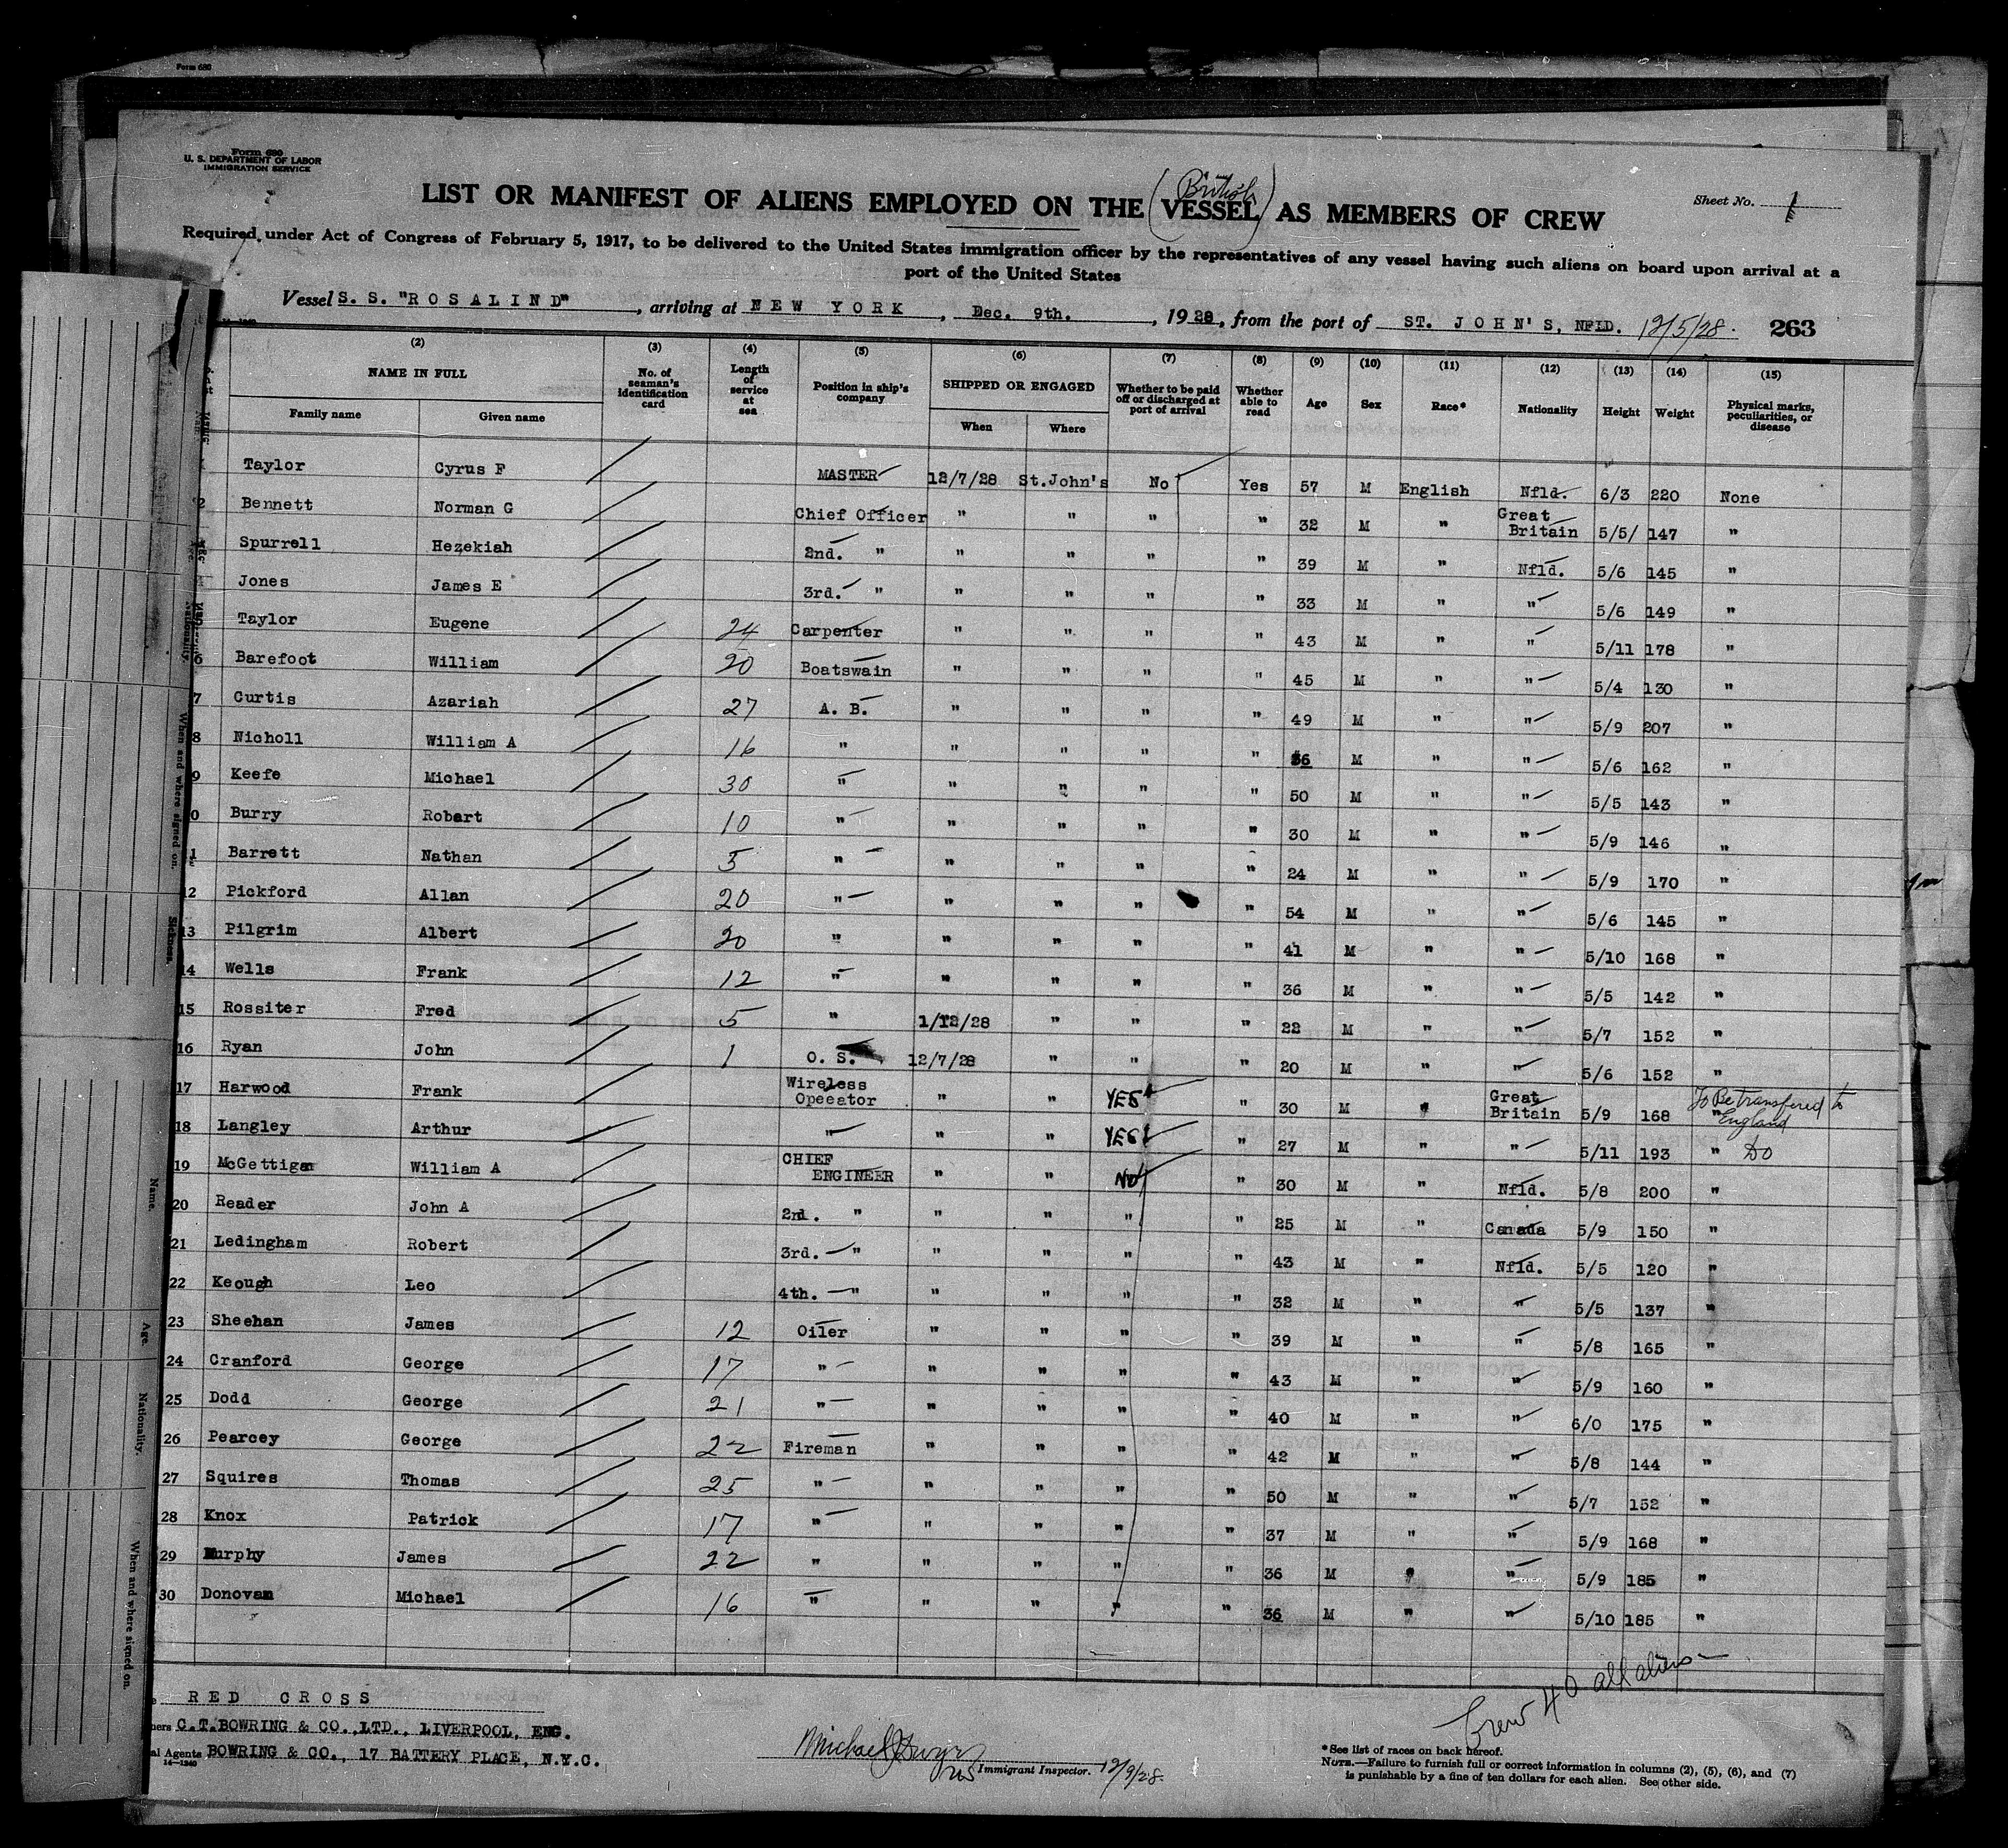 Form 680
Form 680
U. S. DEPARTMENT OF LABOR
IMMIGRATION SERVICE
Sheet No. 1
(British)
LIST OR MANIFEST OF ALIENS EMPLOYED ON THE VESSEL AS MEMBERS OF CREW
Required under Act of Congress of February 5, 1917, to be delivered to the United States immigration officer by the representatives of any vessel having such aliens on board upon arrival at a
port of the United States
Vessel S. S. "ROSALIND", arriving at NEW YORK, Dec. 9th., 1928, from the port of ST. JOHN'S, NFLD. 12/5/28. 263
(2) (3) (4) (5) (6) (7) (8) (9) (10) (11) (12) (13) (14) (15)
NAME IN FULL No. of seaman's identification card Length of service at sea Position in ship's company SHIPPED OR ENGAGED Whether to be paid off or discharged at port of arrival Whether able to read Age Sex Race* Nationality Height Weight Physical marks, peculiarities, or disease
Family name Given name When Where
Taylor Cyrus F MASTER 12/7/28 St.John's No Yes 57 M English Nfld. 6/3 220 None
2 Bennett Norman G Chief Officer " " " " 32 M " Great Britain 5/5/ 147 "
Spurrell Hezekiah 2nd. " " " " " 39 M " Nfld. 5/6 145 "
Jones James E 3rd. " " " " " 33 M " " 5/6 149 "
5 Taylor Eugene 24 Carpenter " " " " 43 M " " 5/11 178 "
6 Barefoot William 20 Boatswain " " " " 45 M " " 5/4 130 "
7 Curtis Azariah 27 A. B. " " " " 49 M " " 5/9 207 "
8 Nicholl William A 16 " " " " " 36 M " " 5/6 162 "
9 Keefe Michael 30 " " " " " 50 M " " 5/5 143 "
0 Burry Robert 10 " " " " " 30 M " " 5/9 146 "
1 Barrett Nathan 5 " " " " " 24 M " " 5/9 170 "
12 Pickford Allan 20 " " " " " 54 M " " 5/6 145 "
13 Pilgrim Albert 20 " " " " " 41 M " " 5/10 168 "
14 Wells Frank 12 " " " " " 36 M " " 5/5 142 "
15 Rossiter Fred 5 " 1/12/28 " " " 22 M " " 5/7 152 "
16 Ryan John 1 O. S. 12/7/28 " " " 20 M " " 5/6 152 "
17 Harwood Frank Wireless Opeeator " " YES " 30 M " Great Britain 5/9 168 " To Be transfered to England
18 Langley Arthur " " " YES " 27 M " " 5/11 193 " Do
19 McGettigan William A CHIEF ENGINEER " " No " 30 M " Nfld. 5/8 200 "
20 Reader John A 2nd. " " " " " 25 M " Canada 5/9 150 "
21 Ledingham Robert 3rd. " " " " " 43 M " Nfld. 5/5 120 "
22 Keough Leo 4th. " " " " " 32 M " " 5/5 137 "
23 Sheehan James 12 Oiler " " " " 39 M " " 5/8 165 "
24 Cranford George 17 " " " " " 43 M " " 5/9 160 "
25 Dodd George 21 " " " " " 40 M " " 6/0 175 "
26 Pearcey George 22 Fireman " " " " 42 M " " 5/8 144 "
27 Squires Thomas 25 " " " " " 50 M " " 5/7 152 "
28 Knox Patrick 17 " " " " " 37 M " " 5/9 168 "
29 Murphy James 22 " " " " " 36 M " " 5/9 185 "
30 Donovan Michael 16 " " " " " 36 M " " 5/10 185 "
Crew 40 all aliens
RED CROSS
C.T.BOWRING & CO.,LTD., LIVERPOOL, ENG.
Agents BOWRING & CO., 17 BATTERY PLACE, N.Y.C.
14-1240
Michael J Dwyer
Immigrant Inspector. 12/9/28.
*See list of races on back hereof.
NOTE.—Failure to furnish full or correct information in columns (2), (5), (6), and (7)
is punishable by a fine of ten dollars for each alien. See other side.
When and where signed on.
Sickness.
Name.
Age.
Nationality.
When and where signed on.